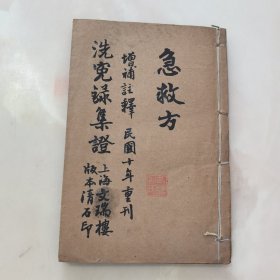 急救方
增補註釋 民國十年重刊
洗冤录集證
上海文瑞樓
版本清石印